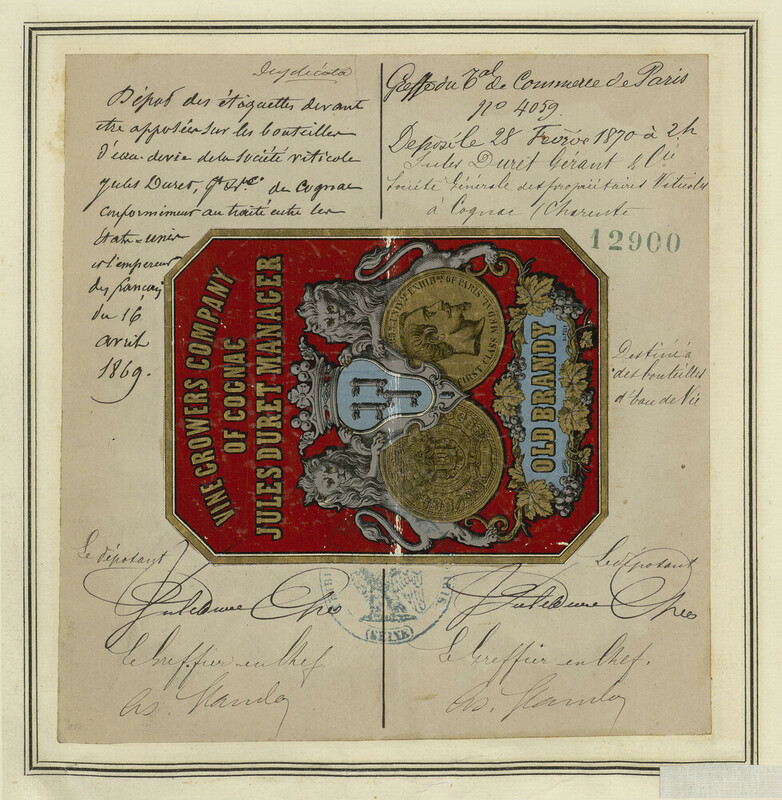 Duplicata
Dépot des étiquettes devant
etre apposées sur les bouteilles
d'eau-de-vie de la Société viticole
Jules Duret, & Cie de Cognac
conformément au traité entre les
Etats-unis
et l'empereur
des français
du 16
avril
1869.
Greffe du Tal de Commerce de Paris
No 4059.
Déposé le 28 Février 1870 à 2h
Jules Duret Gérant & Cie
Société Générale des propriétaires Viticoles
à Cognac (Charente
12900
Destiné à
des bouteilles
d'Eau de Vie
VINE GROWERS COMPANY
OF COGNAC
JULES DURET MANAGER
EXHIBON OF PARIS
FIRST CLASS MEDAL
OLD BRANDY
Le déposant
Le déposant
(SEINE)
Le Greffier en Chef
Le Greffier en Chef.